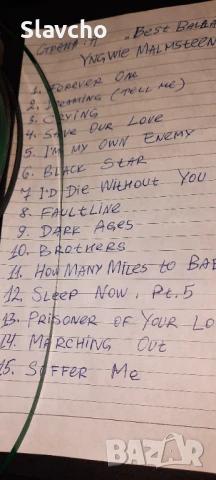 Slavcho
"Best Balla
Yngwie Malmsteen
1. Forever One
2. Dreaming (Tell Me)
3. Crying
4. Save Our Love
5. I'm My Own Enemy
6. Black Star
7 I'd Die Without You
8. Faultline
9. Dark Ages
10. Brothers
11. How Many Miles to Bab
12. Sleep Now, Pt. 5
13. Prisoner of Your Lo
14. Marching Out
15. Suffer Me
bazar.bg